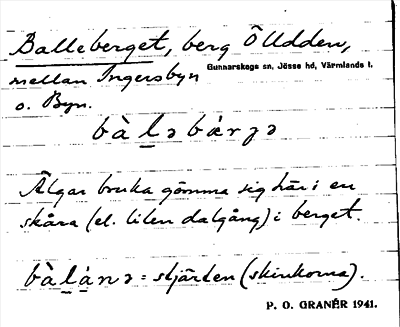 Balleberget, berg Ö Udden,
mellan Ingersbyn Gunnarskogs sn, Jösse hd, Värmlands l.
o. Byn.
bàḷə bærjə
Älgar bruka gömma sig här i en
skåra (el. liten dalgång) i berget.
bàḷa̱nə = stjärten (skinkorna).
P. O. GRANÉR 1941.